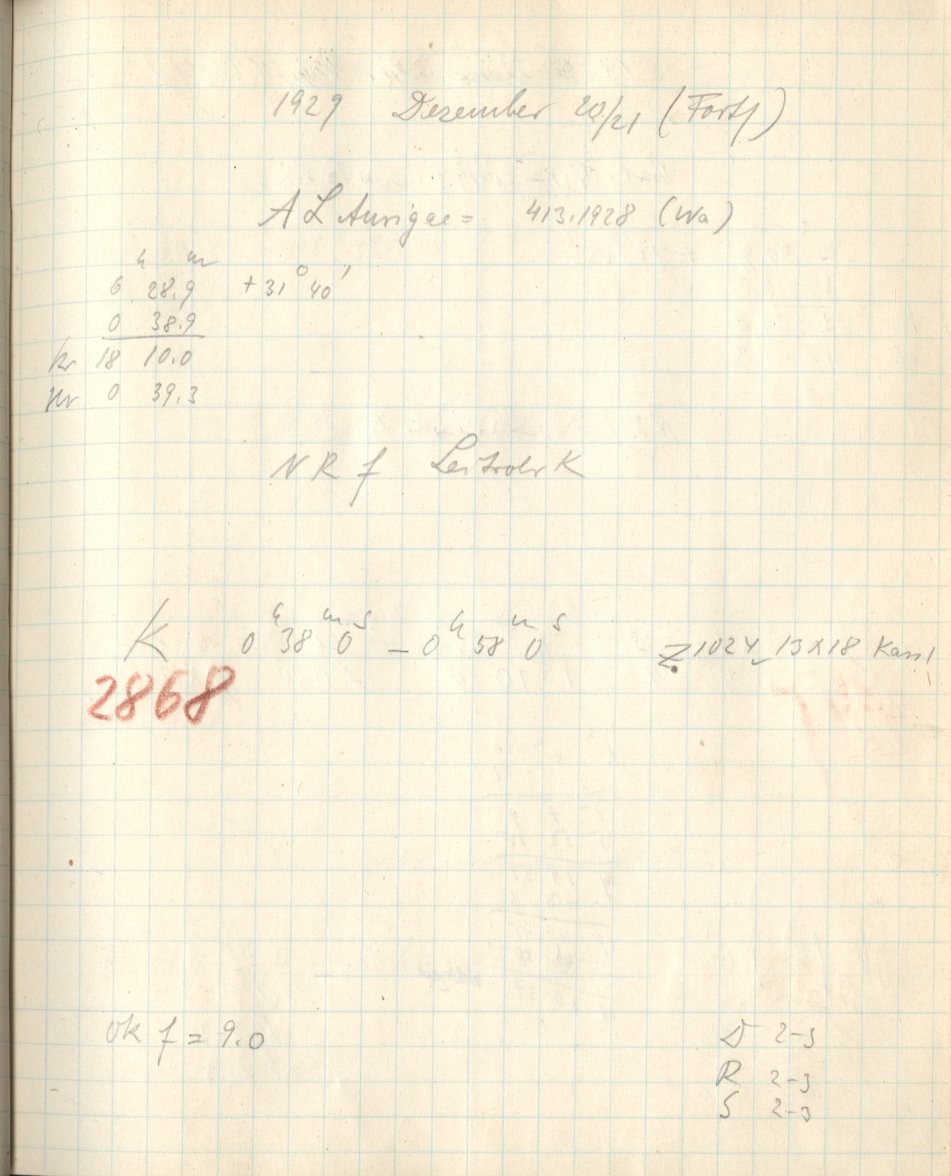 1929 Dezember 20/21 (Forts)
AL Aurigae = 413.1928 (Wa)
h m
6 28.9 +31° 40'
0 38.9
Kr 18 10.0
Hr 0 39.3
NR f Leitrohr K
K 0h 38m 0s – 0h 58m 0s Z 1024 13x18 Kass!
2868
Ok f = 9.0
D 2-3
R 2-3
S 2-3